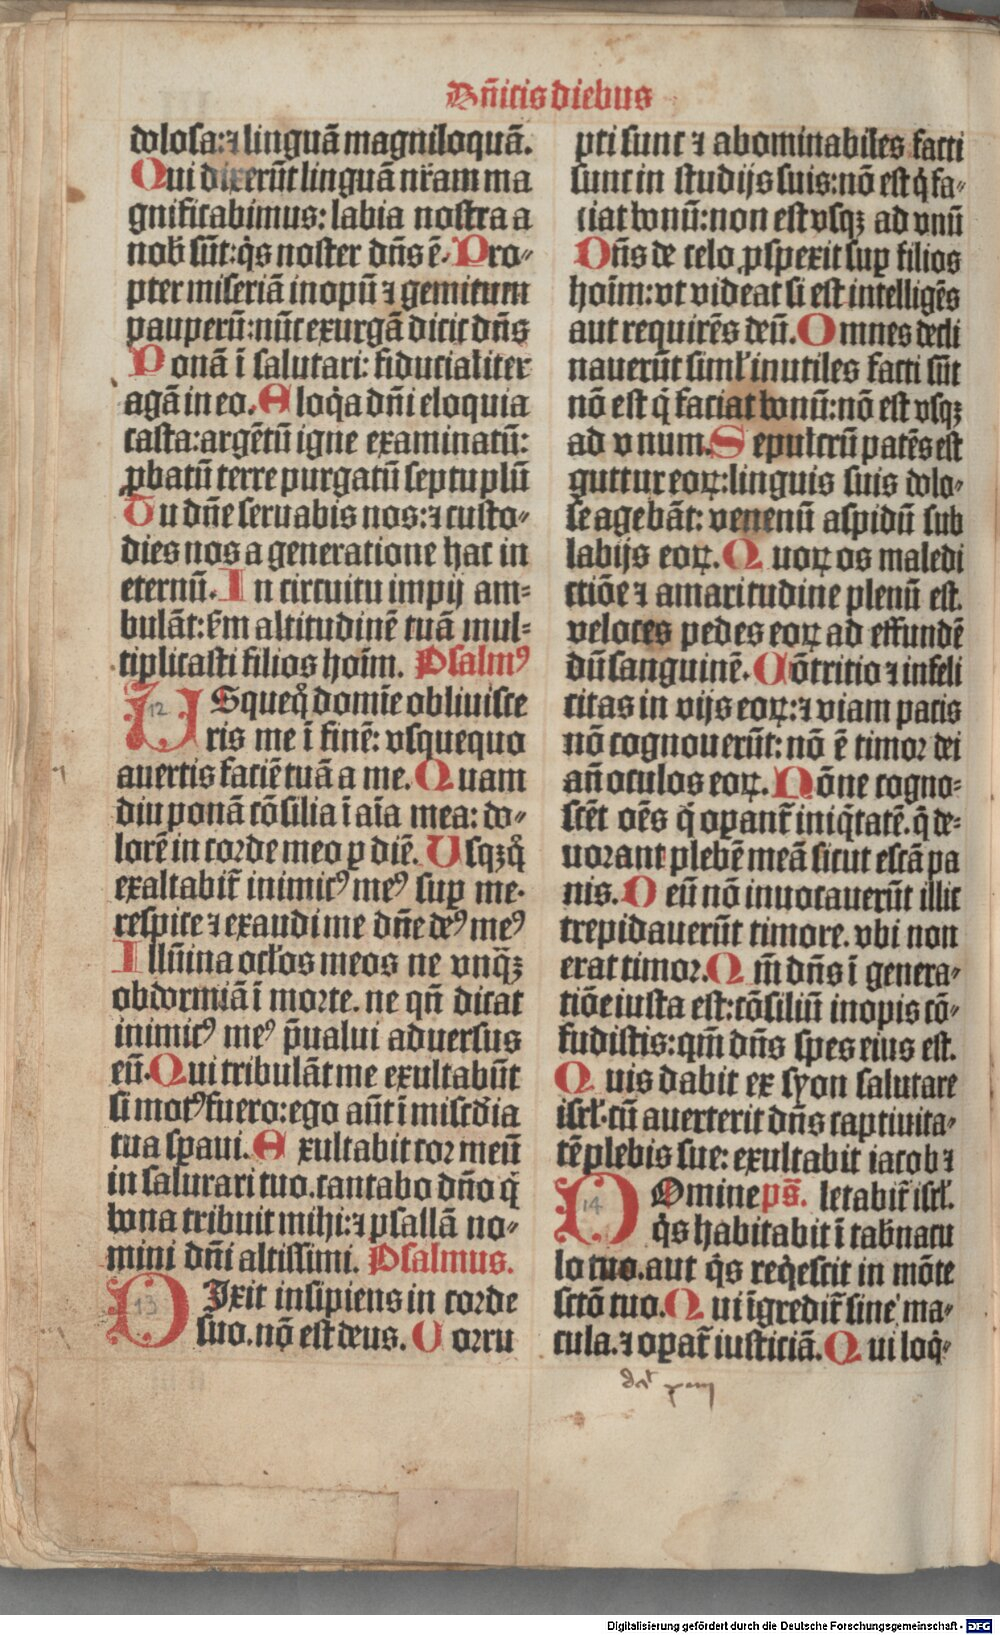 Bn̄icis diebus
dolosa: ⁊ linguā magniloquā.
Qui dixerūt linguā nr̄am ma
gnificabimus: labia nostra a
nob̄ sūt: q̇s noster dn̄s ē. Pro-
pter miseriā inopū ⁊ gemitum
pauperū: nūc exurgā dicit dn̄s
Ponā ī salutari: fiducialiter
agā in eo. Eloq̇a dn̄i eloquia
casta: argētū igne examinatū:
ꝓbatū terre purgatū septuplū
Tu dn̄e seruabis nos: ⁊ custo-
dies nos a generatione hac in
eternū. In circuitu impij am-
bulāt: ẜm altitudinē tuā mul-
tiplicasti filios hoīm. Psalmꝰ
12
USqueqͦ domīe obliuisce
ris me ī finē: vsquequo
auertis faciē tuā a me. Quam
diu ponā cōsilia ī aīa mea: do-
lorē in corde meo ꝑ diē. Usqꝫqͦ
exaltabit᷑ inimicꝰ meꝰ suꝑ me.
respice ⁊ exaudi me dn̄e deꝰ meꝰ
Illūina ocłos meos ne vnq̄ꝫ
obdormiā ī morte. ne qn̄ dicat
inimicꝰ meꝰ p̄ualui aduersus
eū. Qui tribulāt me exultabūt
si motꝰ fuero: ego aūt ī mīscdia
tua sꝑaui. Exultabit cor meū
in salutari tuo. cantabo dn̄o q̇
bona tribuit mihi: ⁊ psallā no-
mini dn̄i altissimi. Psalmus.
13
DIxit insipiens in corde
suo. nō est deus. Corru
pti sunt ⁊ abominabiles facti
sunt in studijs suis: nō est q̇ fa-
ciat bonū: non est vsqꝫ ad vnū
Dn̄s de celo ꝓspexit suꝑ filios
hoīm: vt videat si est intelligēs
aut requirēs deū. Omnes decli
nauerūt simł inutiles facti sūt
nō est q̇ faciat bonū: nō est vsqꝫ
ad vnum. Sepulcrū patēs est
guttur eoꝝ: linguis suis dolo-
se agebāt: venenū aspidū sub
labijs eoꝝ. Quoꝝ os maledi
ctiōe ⁊ amaritudine plenū est.
veloces pedes eoꝝ ad effundē
dū sanguinē. Cōtritio ⁊ infeli
citas in vijs eoꝝ: ⁊ viam pacis
nō cognouerūt: nō ē timor dei
an̄ oculos eoꝝ. Nōne cogno-
scēt oēs q̇ oꝑant᷑ iniq̇tatē. q̇ de-
uorant plebē meā sicut escā pa
nis. Deū nō inuocauerūt illic
trepidauerūt timore. vbi non
erat timor. Qm̄ dn̄s ī genera-
tiōe iusta est: cōsiliū inopis cō-
fudistis: qm̄ dn̄s spes eius est.
Quis dabit ex syon salutare
isrł. cū auerterit dn̄s captiuita-
tē plebis sue: exultabit iacob ⁊
letabit᷑ isrł.
14
DOmine ps̄.
q̇s habitabit ī tab̄nacu
lo tuo. aut q̇s req̇escit in mōte
sctō tuo. Qui īgredit᷑ sine ma-
cula. ⁊ oꝑat᷑ iusticiā. Qui loq̇-
Digitalisierung gefördert durch die Deutsche Forschungsgemeinschaft - DFG